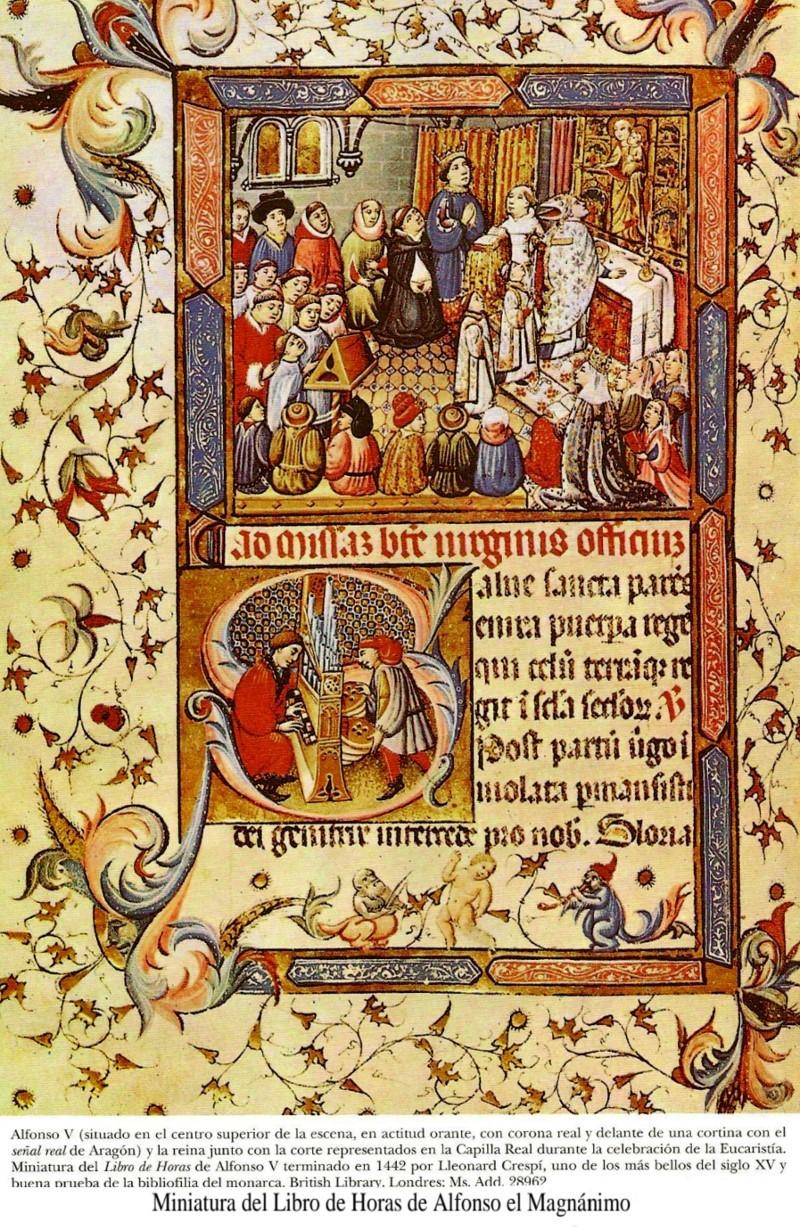 ad missaz bte uirginis officiuz
alue sancta parēs
enixa puerpa regē
qui celū terrāqz re
git ī scla sclorz. V
Post partū ūgo ī
uiolata pmansisti
dei genitrix intercede pro nob. Gloria
Alfonso V (situado en el centro superior de la escena, en actitud orante, con corona real y delante de una cortina con el
señal real de Aragón) y la reina junto con la corte representados en la Capilla Real durante la celebración de la Eucaristía.
Miniatura del Libro de Horas de Alfonso V terminado en 1442 por Lleonard Crespí, uno de los más bellos del siglo XV y
buena prueba de la bibliofilia del monarca. British Library. Londres: Ms. Add. 28962
Miniatura del Libro de Horas de Alfonso el Magnánimo